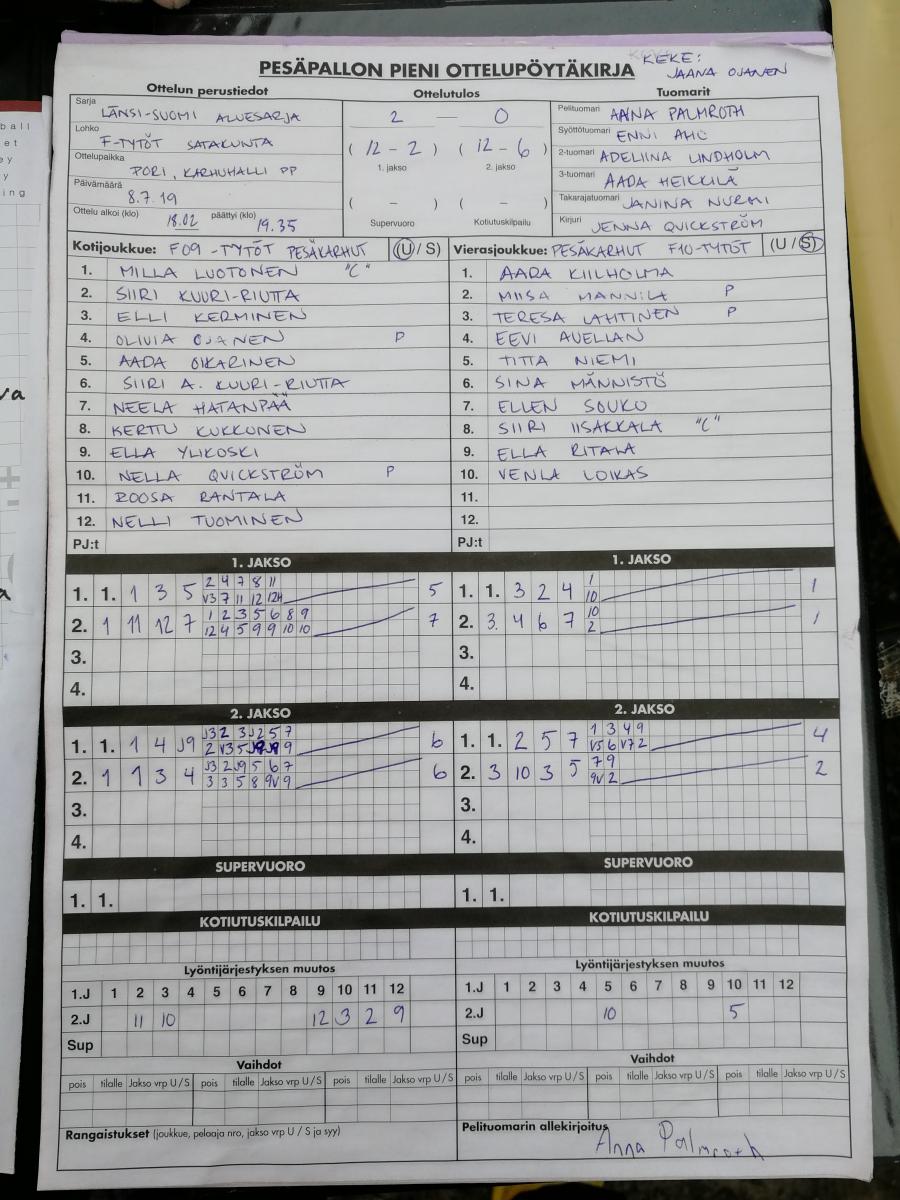 KEKE:
JAANA OJANEN
PESÄPALLON PIENI OTTELUPÖYTÄKIRJA
Ottelun perustiedot
Ottelutulos
Tuomarit
Sarja LÄNSI-SUOMI ALUESARJA
2 — 0
Pelituomari AAINA PALMROTH
Lohko F-TYTÖT SATAKUNTA
(12 - 2) (12 - 6)
Syöttötuomari ENNI AHO
1. jakso 2. jakso
Ottelupaikka PORI, KARHUHALLI PP
2-tuomari ADELIINA LINDHOLM
Päivämäärä 8.7.19
3-tuomari AADA HEIKKILÄ
( - ) ( - )
Takarajatuomari JANINA NURMI
Ottelu alkoi (klo) 18.02 päättyi (klo) 19.35
Supervuoro Kotiutuskilpailu
Kirjuri JENNA QUICKSTRÖM
Kotijoukkue: F09 -TYTÖT PESÄKARHUT (U / S)
Vierasjoukkue: PESÄKARHUT F10-TYTÖT (U / S)
1. MILLA LUOTONEN "C"
1. AADA KIILHOLMA
2. SIIRI KUURI-RIUTTA
2. MIISA MANNILA P
3. ELLI KERMINEN
3. TERESA LAHTINEN P
4. OLIVIA OJANEN P
4. EEVI AVELLAN
5. AADA OIKARINEN
5. TITTA NIEMI
6. SIIRI A. KUURI-RIUTTA
6. SINA MÄNNISTÖ
7. NEELA HATANPÄÄ
7. ELLEN SOUKO
8. KERTTU KUKKONEN
8. SIIRI IISAKKALA "C"
9. ELLA YLIKOSKI
9. ELLA RITALA
10. NELLA QVICKSTRÖM P
10. VENLA LOIKAS
11. ROOSA RANTALA
11.
12. NELLI TUOMINEN
12.
PJ:t
PJ:t
1. JAKSO
1. JAKSO
1. 1. 1 3 5 2 4 7 8 11 5
V3 7 11 12 12
1. 1. 3 2 4 1 1
10
2. 1 11 12 7 1 2 3 5 6 8 9 7
12 4 5 9 9 10 10
2. 3. 4 6 7 10 1
2
3.
3.
4.
4.
2. JAKSO
2. JAKSO
1. 1. 1 4 J9 J3 2 3 J2 5 7 6
2 V3 5 J9 J9 9
1. 1. 2 5 7 1 3 4 9 4
V5 6 V7 2
2. 1 1 3 4 J3 2 J9 5 6 7 6
3 3 5 8 9V 9
2. 3 10 3 5 7 9 2
9V 2
3.
3.
4.
4.
SUPERVUORO
SUPERVUORO
1. 1.
1. 1.
KOTIUTUSKILPAILU
KOTIUTUSKILPAILU
Lyöntijärjestyksen muutos
Lyöntijärjestyksen muutos
1.J 1 2 3 4 5 6 7 8 9 10 11 12
1.J 1 2 3 4 5 6 7 8 9 10 11 12
2.J 11 10 12 3 2 9
2.J 10 5
Sup
Sup
Vaihdot
Vaihdot
pois tilalle Jakso vrp U / S pois tilalle Jakso vrp U / S pois tilalle Jakso vrp U / S
pois tilalle Jakso vrp U / S pois tilalle Jakso vrp U / S pois tilalle Jakso vrp U / S
Rangaistukset (joukkue, pelaaja nro, jakso vrp U / S ja syy)
Pelituomarin allekirjoitus
Anna Palmroth